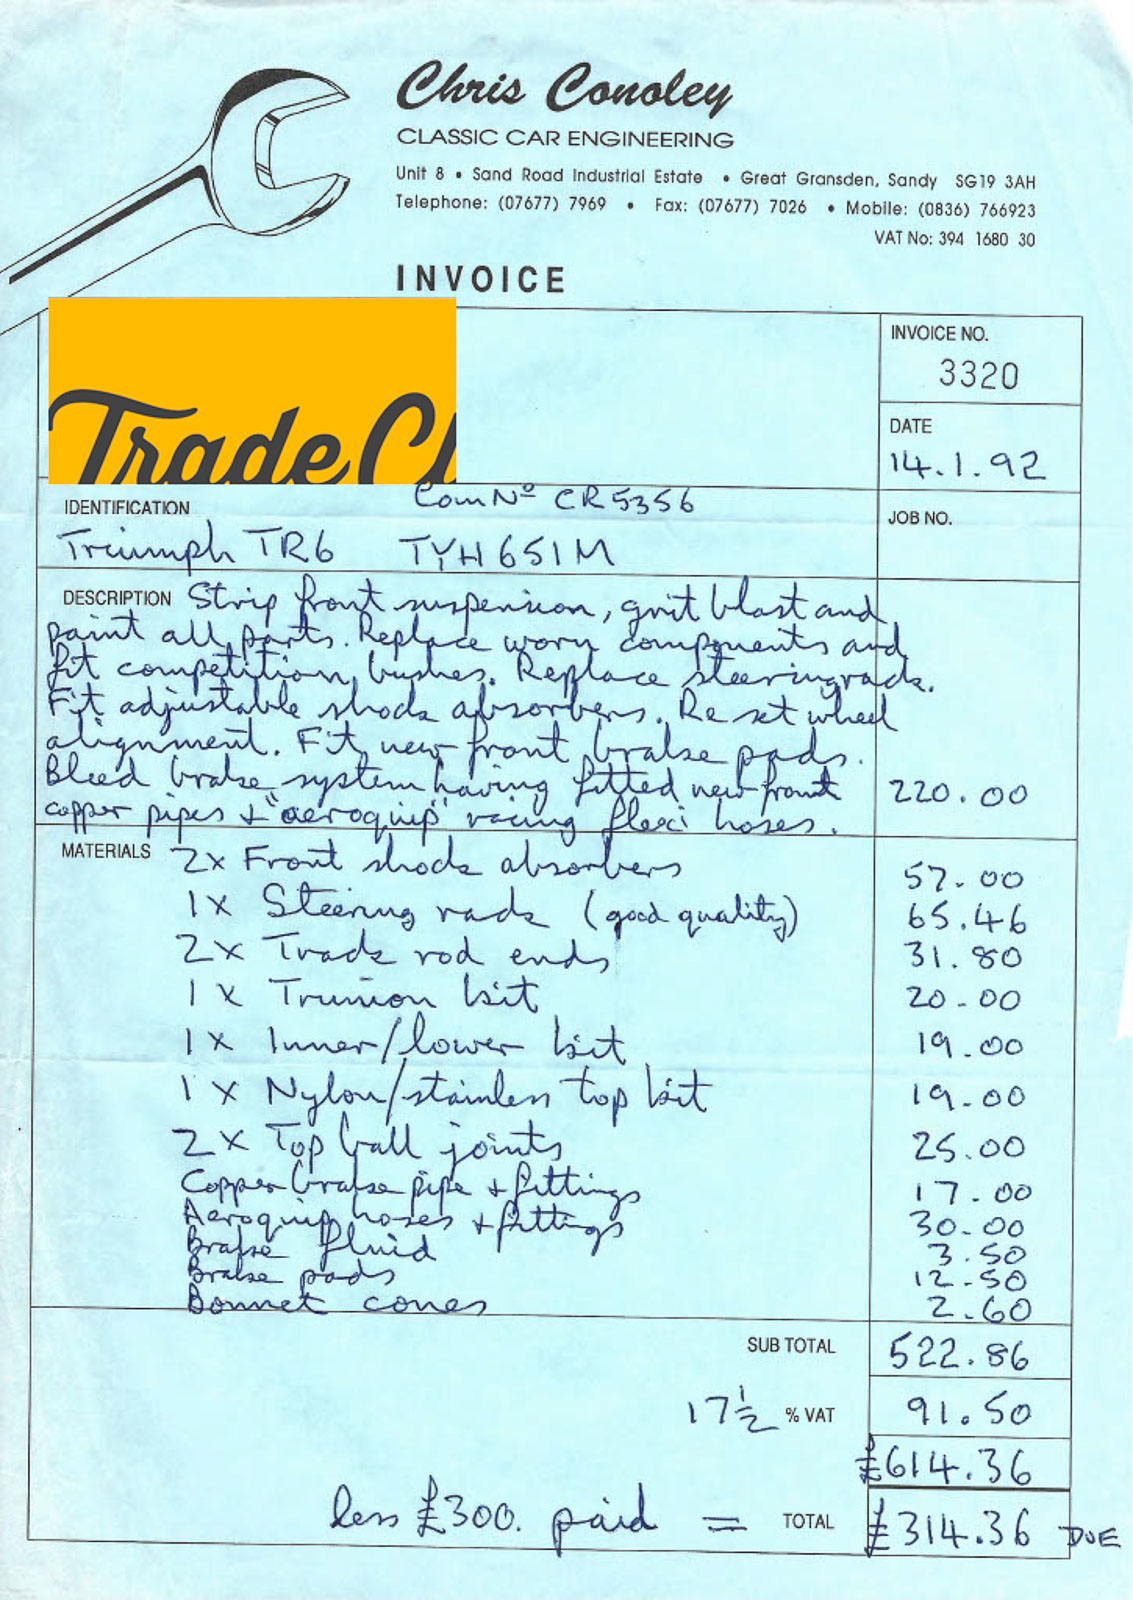 Chris Conoley
CLASSIC CAR ENGINEERING
Unit 8 • Sand Road Industrial Estate • Great Gransden, Sandy SG19 3AH
Telephone: (07677) 7969 • Fax: (07677) 7026 • Mobile: (0836) 766923
VAT No: 394 1680 30
INVOICE
INVOICE NO.
3320
Trade Cl
DATE
14.1.92
IDENTIFICATION
Com Nº CR5356
JOB NO.
Triumph TR6 TYH 651M
DESCRIPTION Strip front suspension, grit blast and
paint all parts. Replace worn components and
fit competition bushes. Replace steering rack.
Fit adjustable shock absorbers. Re set wheel
alignment. Fit new front brake pads.
Bleed brake system having fitted new front 220.00
copper pipes + "aeroquip" racing flexi hoses.
MATERIALS 2x Front shock absorbers 57.00
1x Steering rack (good quality) 65.46
2x Track rod ends 31.80
1x Trunion kit 20-00
1x Inner/lower kit 19.00
1x Nylon/stainless top kit 19.00
2x Top ball joints 25.00
Copper brake pipe + fittings 17.00
Aeroquip hoses + fittings 30.00
Brake fluid 3.50
Brake pads 12-50
Bonnet cones 2.60
SUB TOTAL 522.86
17½ % VAT 91.50
£614.36
less £300. paid = TOTAL £314.36 DUE